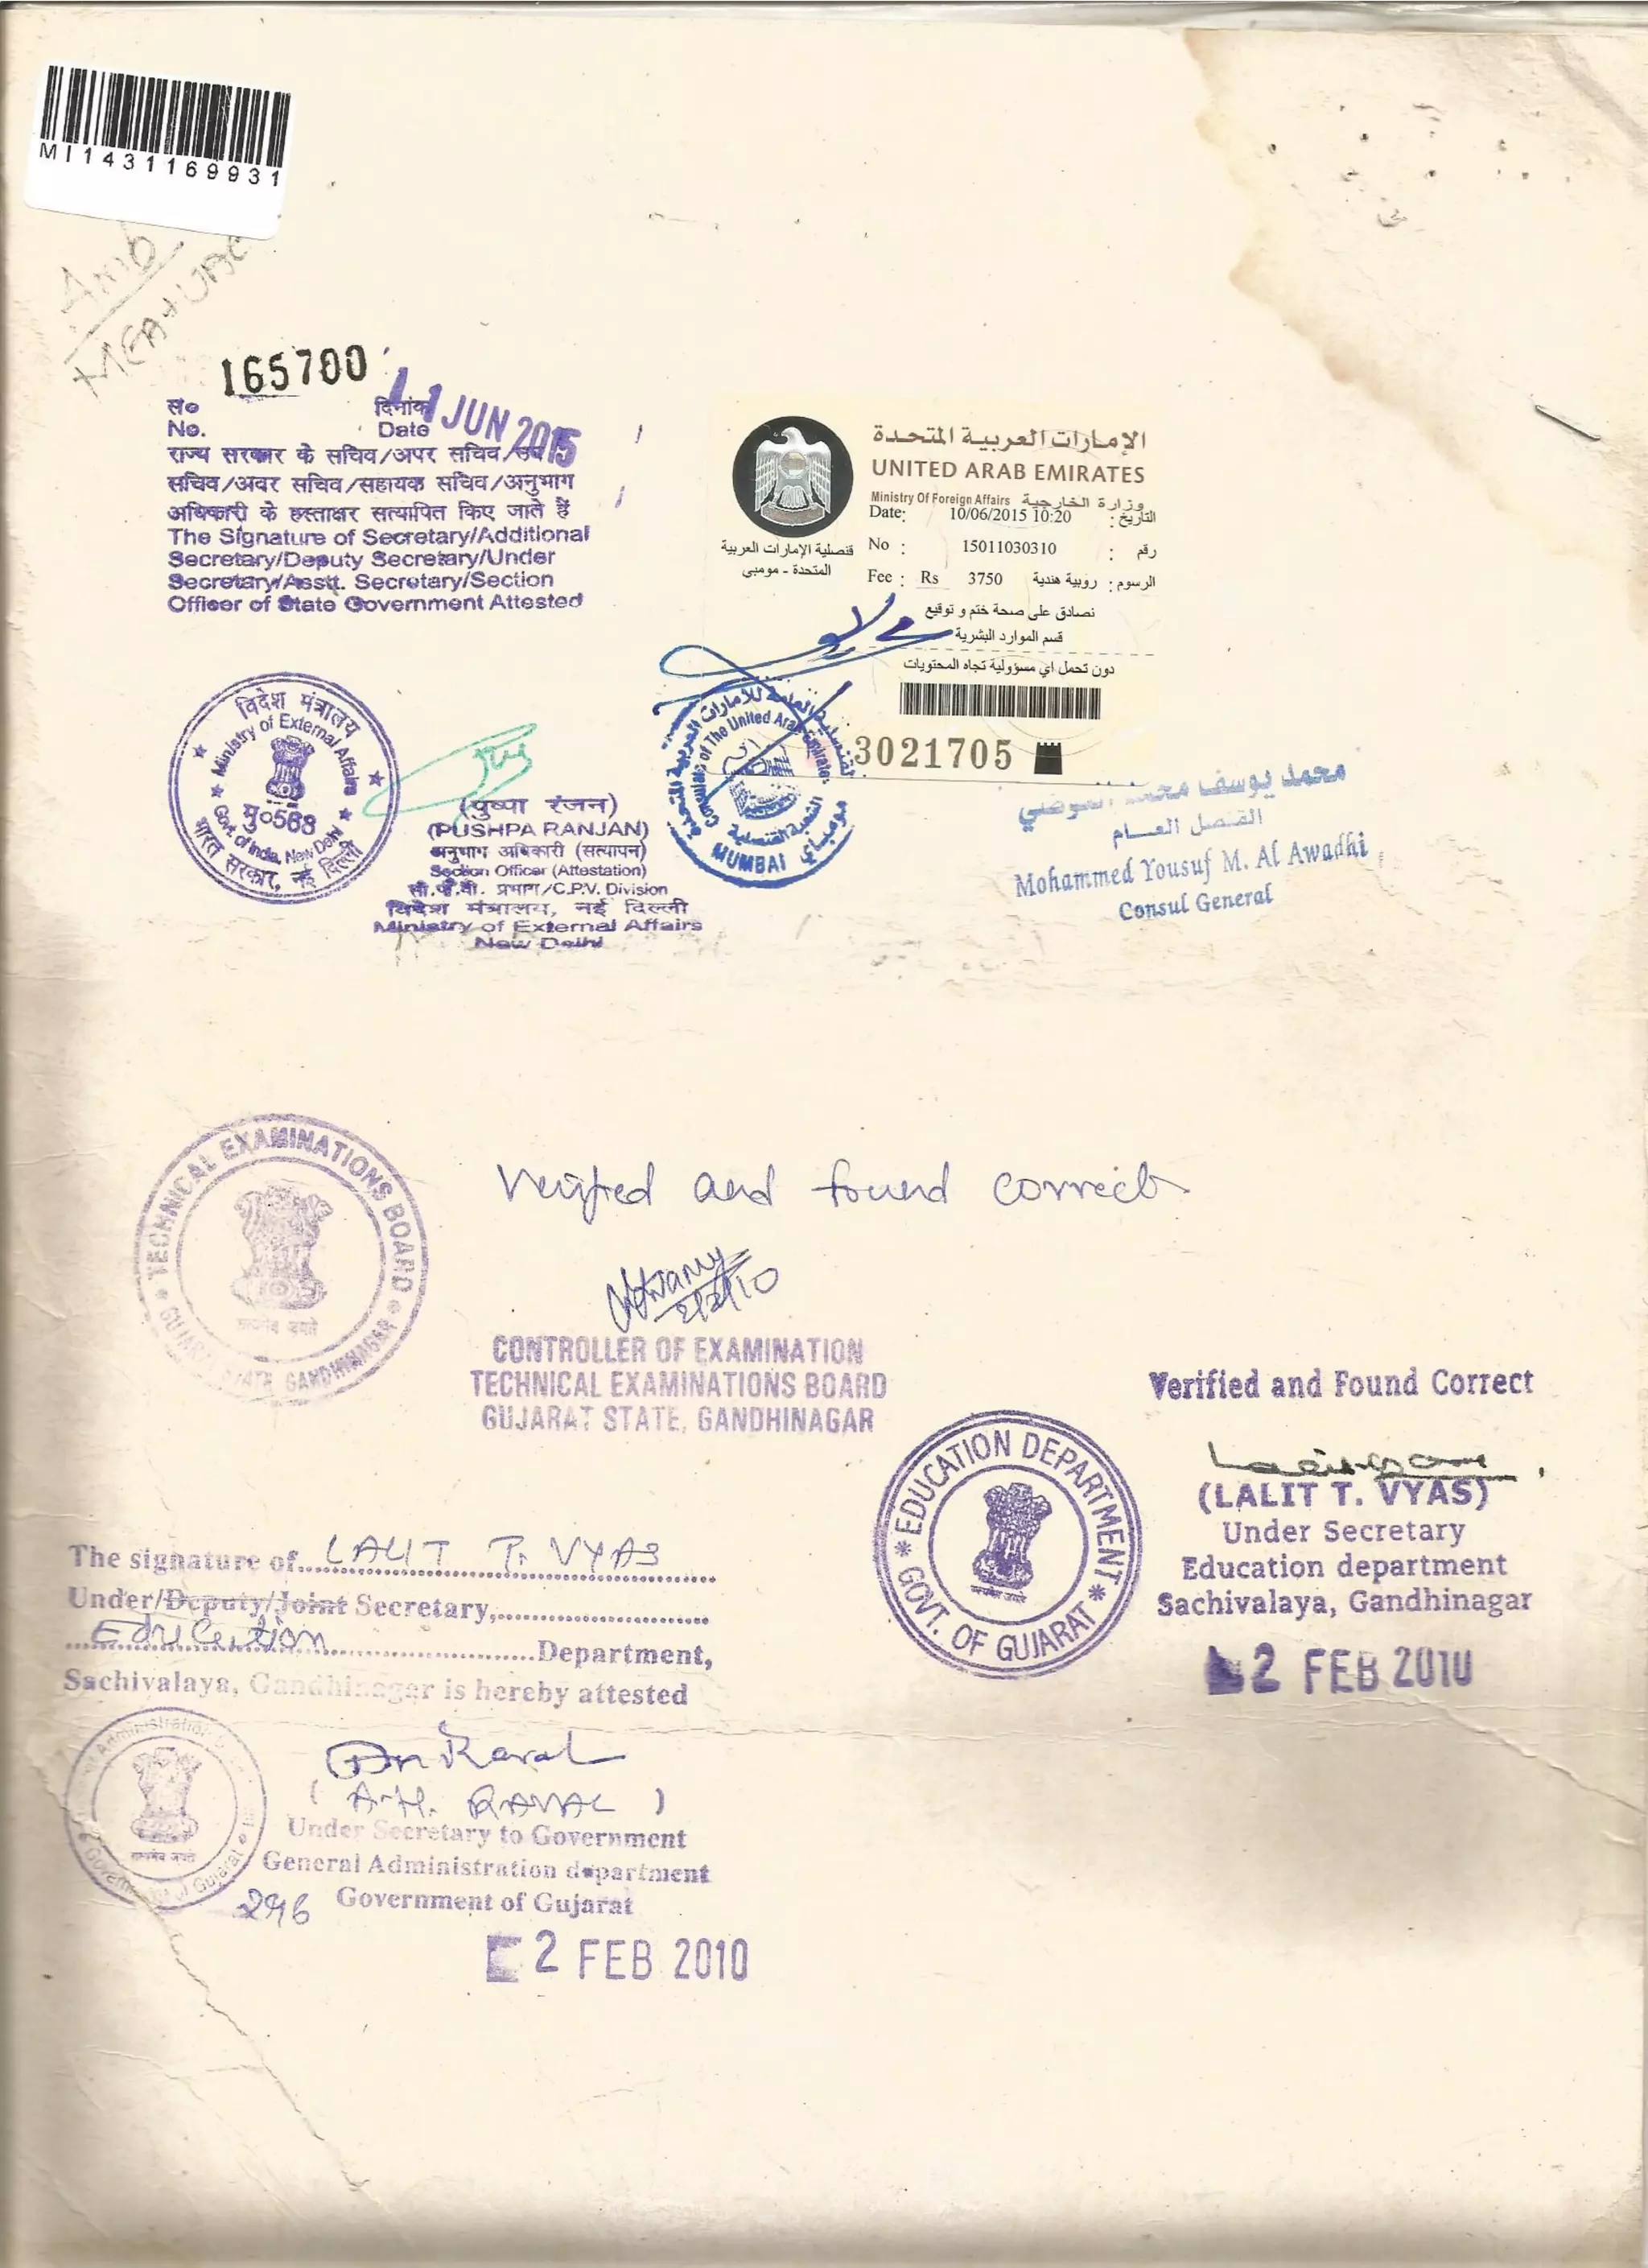 MI1431169931
Amb
MEA+UAE
165700
सं० दिनांक
No. Date
1 JUN 2015
राज्य सरकार के सचिव/अपर सचिव/उप
सचिव/अवर सचिव/सहायक सचिव/अनुभाग
अधिकारी के हस्ताक्षर सत्यापित किए जाते हैं
The Signature of Secretary/Additional
Secretary/Deputy Secretary/Under
Secretary/Asstt. Secretary/Section
Officer of State Government Attested
الإمارات العربية المتحدة
UNITED ARAB EMIRATES
Ministry Of Foreign Affairs وزارة الخارجية
Date: 10/06/2015 10:20 التاريخ :
No : 15011030310 رقم :
Fee : Rs 3750 الرسوم : روبية هندية
قنصلية الإمارات العربية
المتحدة - مومبي
نصادق على صحة ختم و توقيع
قسم الموارد البشرية
دون تحمل اي مسؤولية تجاه المحتويات
3021705
विदेश मंत्रालय
Ministry of External Affairs
मु०568
Govt. of India, New Delhi
भारत सरकार, नई दिल्ली
(पुष्पा रंजन)
(PUSHPA RANJAN)
अनुभाग अधिकारी (सत्यापन)
Section Officer (Attestation)
सी.पी.वी. प्रभाग/C.P.V. Division
विदेश मंत्रालय, नई दिल्ली
Ministry of External Affairs
New Delhi
Consulate of The United Arab Emirates
MUMBAI مومباي
محمد يوسف محمد العوضي
القنصل العام
Mohammed Yousuf M. Al Awadhi
Consul General
TECHNICAL EXAMINATIONS BOARD
GUJARAT STATE GANDHINAGAR
सत्यमेव जयते
Verified and found correct
2/2/10
CONTROLLER OF EXAMINATION
TECHNICAL EXAMINATIONS BOARD
GUJARAT STATE, GANDHINAGAR
Verified and Found Correct
(LALIT T. VYAS)
Under Secretary
Education department
Sachivalaya, Gandhinagar
2 FEB 2010
EDUCATION DEPARTMENT
GOVT. OF GUJARAT
The signature of LALIT T. VYAS
Under/Deputy/Joint Secretary,
Education Department,
Sachivalaya, Gandhinagar is hereby attested
Administration
Government of Gujarat
सत्यमेव जयते
(A.H. RAVAL)
Under Secretary to Government
General Administration department
296 Government of Gujarat
2 FEB 2010